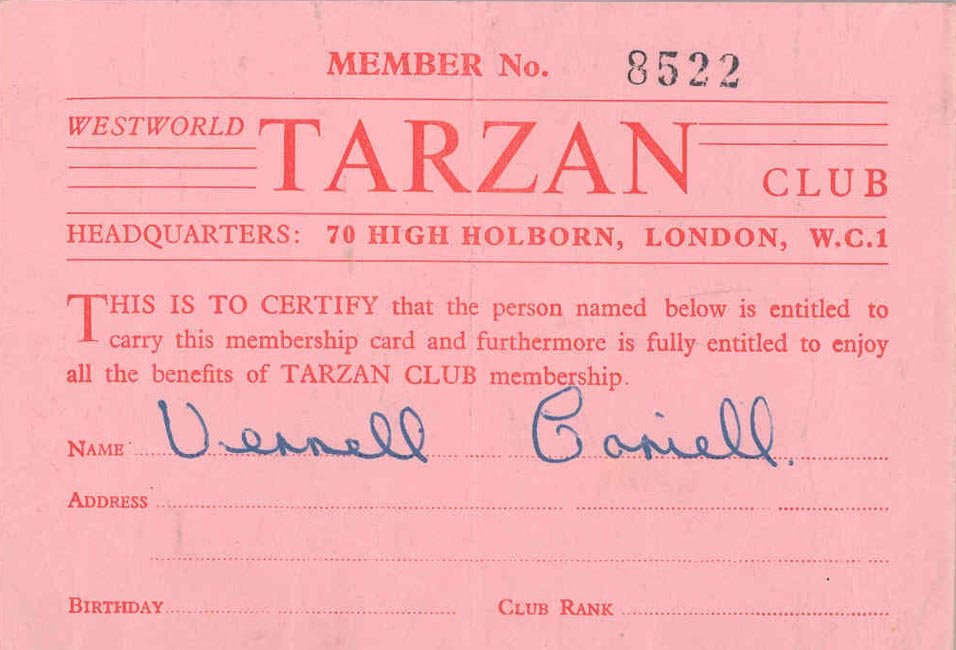 MEMBER No. 8522
WESTWORLD TARZAN CLUB
HEADQUARTERS: 70 HIGH HOLBORN, LONDON, W.C.1
THIS IS TO CERTIFY that the person named below is entitled to
carry this membership card and furthermore is fully entitled to enjoy
all the benefits of TARZAN CLUB membership.
NAME Vernell
ADDRESS
BIRTHDAY CLUB RANK